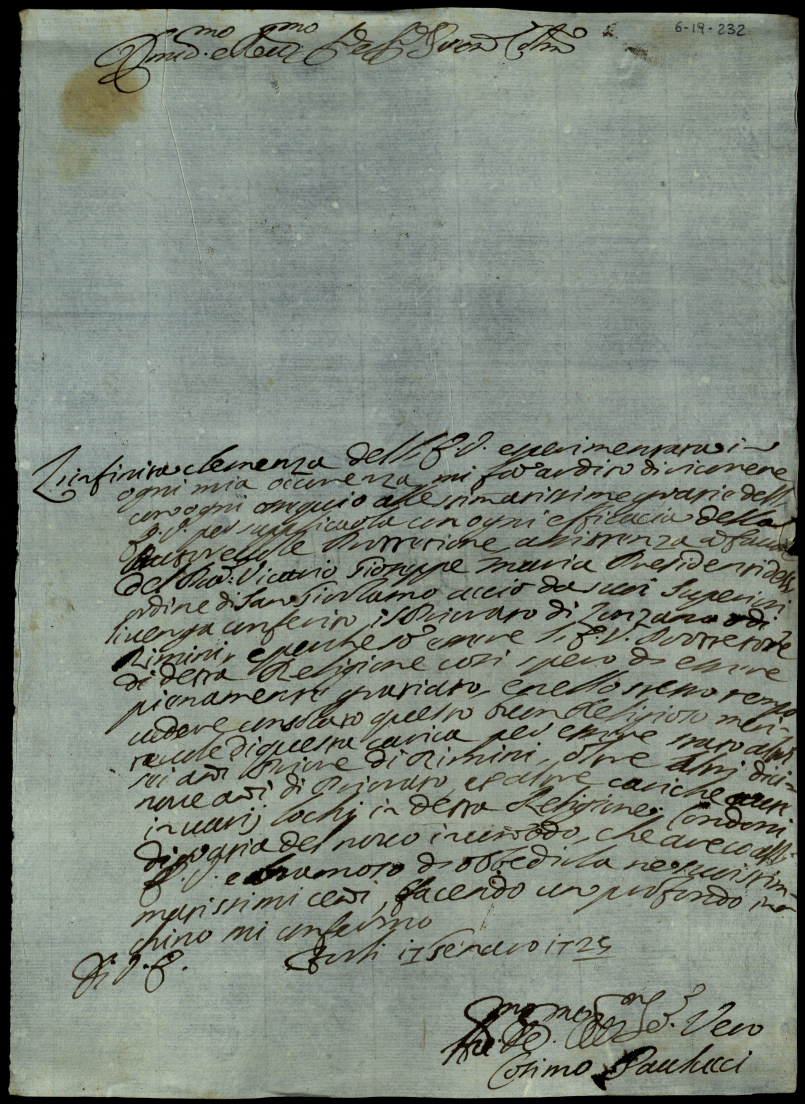 6-19-232
Emo. e Revmo
L'infinita clemenza dell' E. V. esperimentata in
ogni mia occorenza mi fa ardito di ricorrere
con ogni ossequio alle stimatissime grazie dell'
E. V. per supplicarla con ogni efficacia della
Protezione assistenza a favore
del Vicario Gioseppe Maria Presidenti dell'
ordine di San Girolamo acciò da suoi Superiori
venga conferito il Priorato di o di
Rimini, e perche so essere l' E. V. Protettore
di detta Religione così spero di essere
pienamente graziato, e nello stesso tempo
vedere consolato questo buon Religioso meri-
tevole di questa carica per essere stato
sei anni Priore di Rimini, oltre altri dieci-
nove anni di Priorato, et altre cariche
in varij lochi in detta Religione; Condoni
di grazia del novo incomodo, che areco all'
E. V. e bramoso di obbedirla ne suoi sti-
matissimi cenni, facendo un profondo in-
chino mi confermo
Di V. E. Forlì 17 Genaro 1725
Servo
Cosimo Paulucci